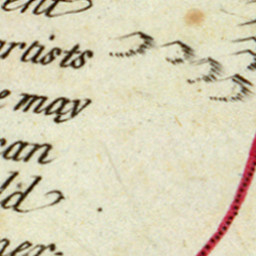 ent
artists
e may
can
ld
ner-